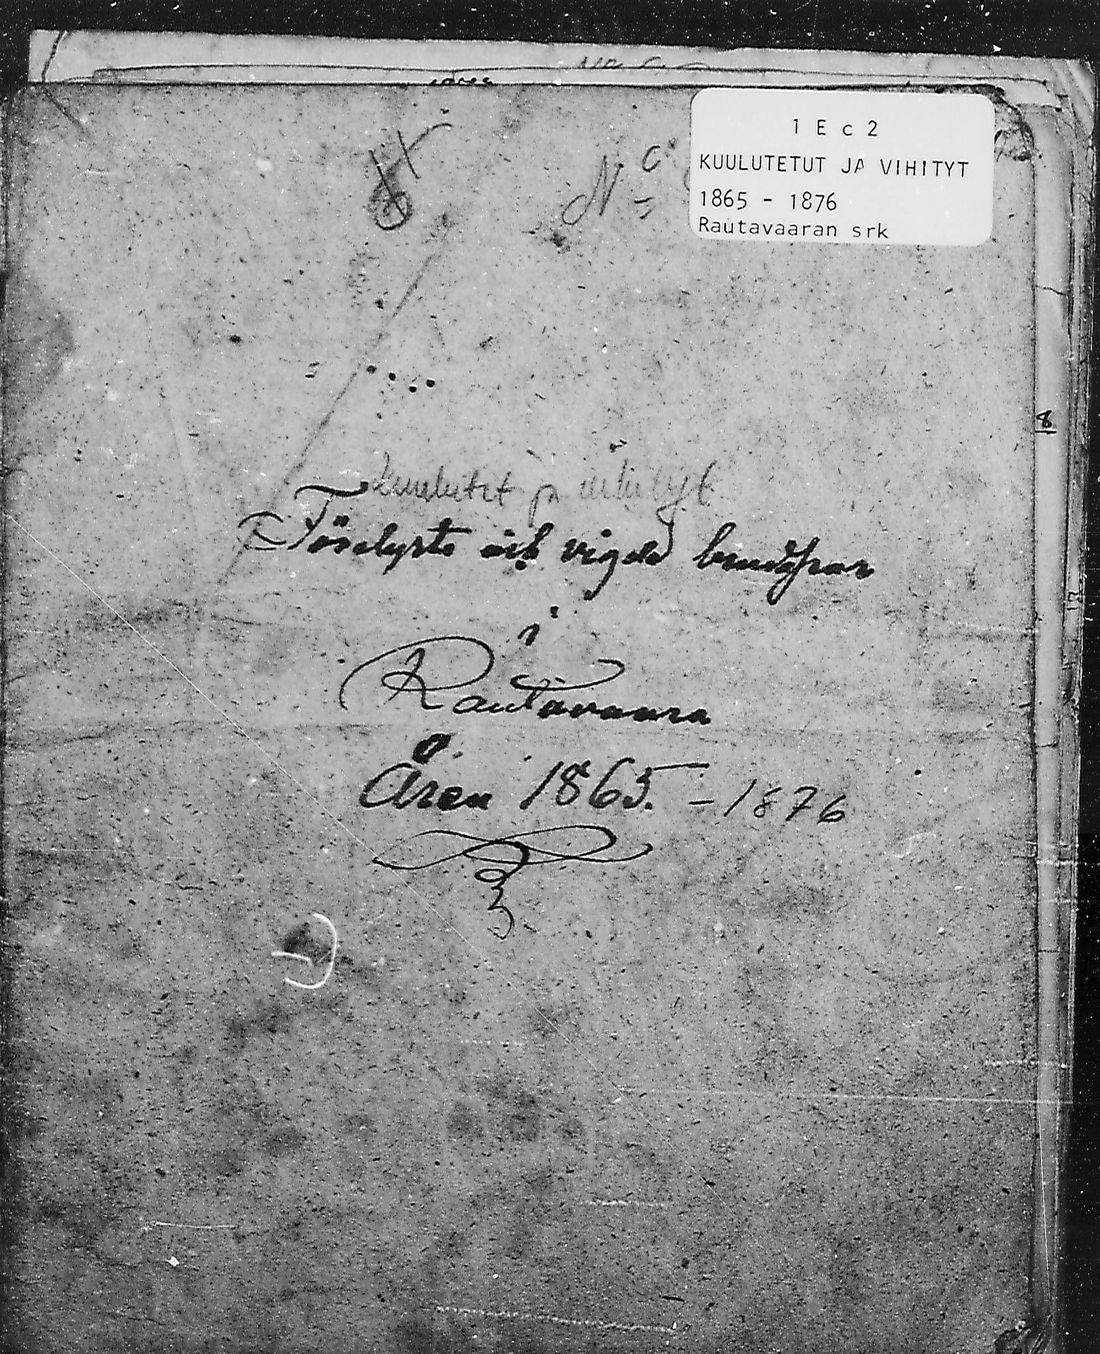 1 E c 2
KUULUTETUT JA VIHITYT
1865 - 1876
Rautavaaran srk
H
N
Kuulutet ja vihityt
Förelysta och vigda
i
Rautavaara
Åren 1865. - 1876
8
17